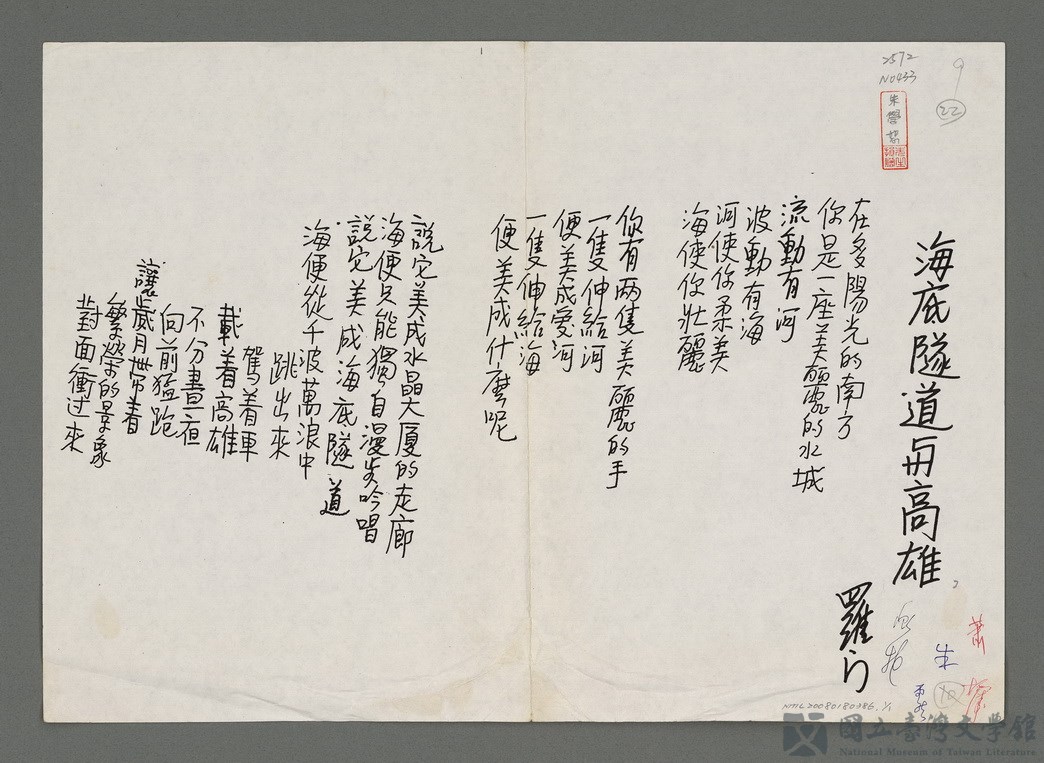 9
22
2572
N0433
朱學恕
海底隧道与高雄
羅门
在多陽光的南方
你是一座美麗的水城
流動有河
波動有海
河使你柔美
海使你壯麗
你有两隻美麗的手
一隻伸給河
便美成愛河
一隻伸給海
便美成什麼呢
說它美成水晶大厦的走廊
海便只能獨自漫步吟唱
說它美成海底隧道
海便從千波萬浪中
跳出來
駕着車
載着高雄
不分晝夜
向前猛跑
讓歲月帶着
繁榮的景象
對面衝过來
蕭
朱
NMTL20080180386.1/1
國立臺灣文學館
National Museum of Taiwan Literature